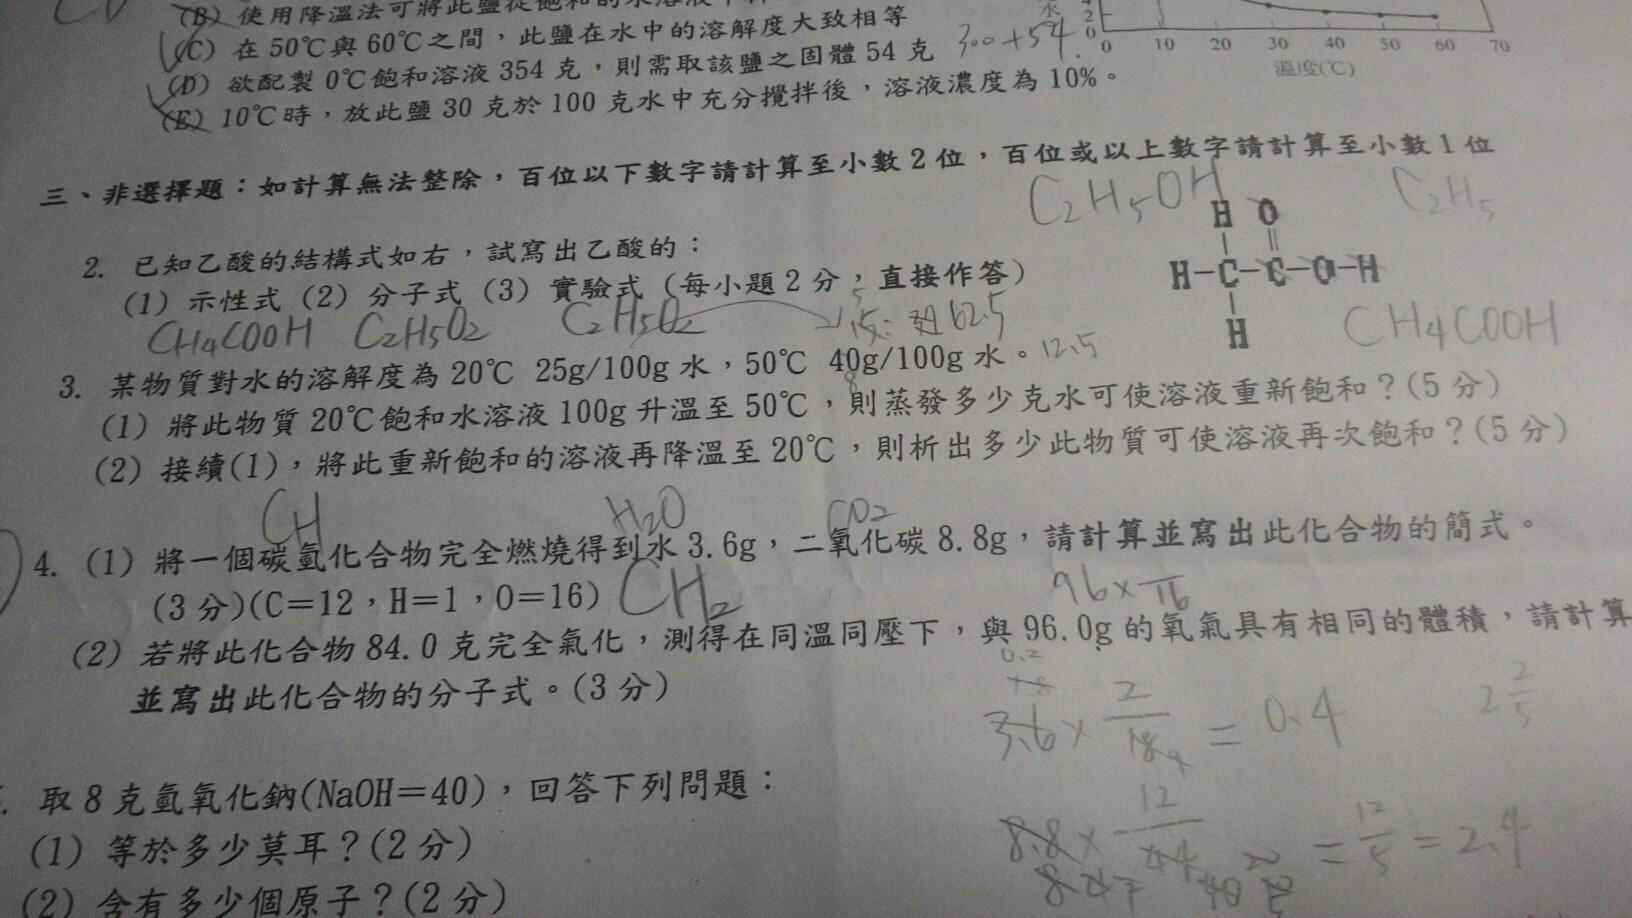 (B) 使用降溫法可將此鹽從飽和的水溶液中
(C) 在 50℃與 60℃之間，此鹽在水中的溶解度大致相等
(D) 欲配製 0℃飽和溶液 354 克，則需取該鹽之固體 54 克 300+54
(E) 10℃時，放此鹽 30 克於 100 克水中充分攪拌後，溶液濃度為 10%。
水
4
2
0
0 10 20 30 40 50 60 70
溫度(℃)
三、非選擇題：如計算無法整除，百位以下數字請計算至小數 2 位，百位或以上數字請計算至小數 1 位
C2H5OH C2H5
2. 已知乙酸的結構式如右，試寫出乙酸的：
(1) 示性式 (2) 分子式 (3) 實驗式 (每小題 2 分，直接作答)
CH4COOH C2H5O2 C2H5O2 62.5
H O
H-C-C-O-H
H
CH4COOH
3. 某物質對水的溶解度為 20℃ 25g/100g 水，50℃ 40g/100g 水。12.5
(1) 將此物質 20℃飽和水溶液 100g 升溫至 50℃，則蒸發多少克水可使溶液重新飽和？(5 分)
(2) 接續(1)，將此重新飽和的溶液再降溫至 20℃，則析出多少此物質可使溶液再次飽和？(5 分)
CH H2O CO2
4. (1) 將一個碳氫化合物完全燃燒得到水 3.6g，二氧化碳 8.8g，請計算並寫出此化合物的簡式。
(3 分)(C=12，H=1，O=16) CH2 96×
16
(2) 若將此化合物 84.0 克完全氣化，測得在同溫同壓下，與 96.0g 的氧氣具有相同的體積，請計算
並寫出此化合物的分子式。(3 分)
0.2
3.6 × 2/18 = 0.4 2 2/5
取 8 克氫氧化鈉(NaOH=40)，回答下列問題：
8.8 × 12/44 = 12/5 = 2.4
(1) 等於多少莫耳？(2 分)
(2) 含有多少個原子？(2 分)